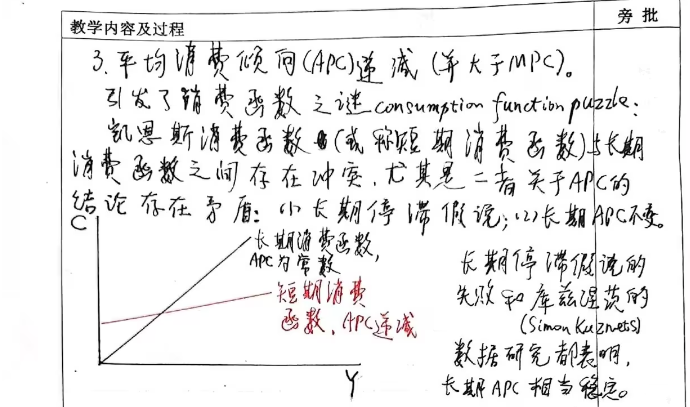 教学内容及过程
旁 批
3.平均消费倾向(APC)递减(并大于MPC)。
引发了消费函数之谜consumption function puzzle:
凯恩斯消费函数(或称短期消费函数)与长期
消费函数之间存在冲突,尤其是二者关于APC的
结论存在矛盾:(1)长期停滞假说;(2)长期APC不变。
C
长期消费函数,
APC为常数
短期消费
函数,APC递减
Y
长期停滞假说的
失败和库兹涅茨的
(Simon Kuznets)
数据研究都表明,
长期APC相当稳定。